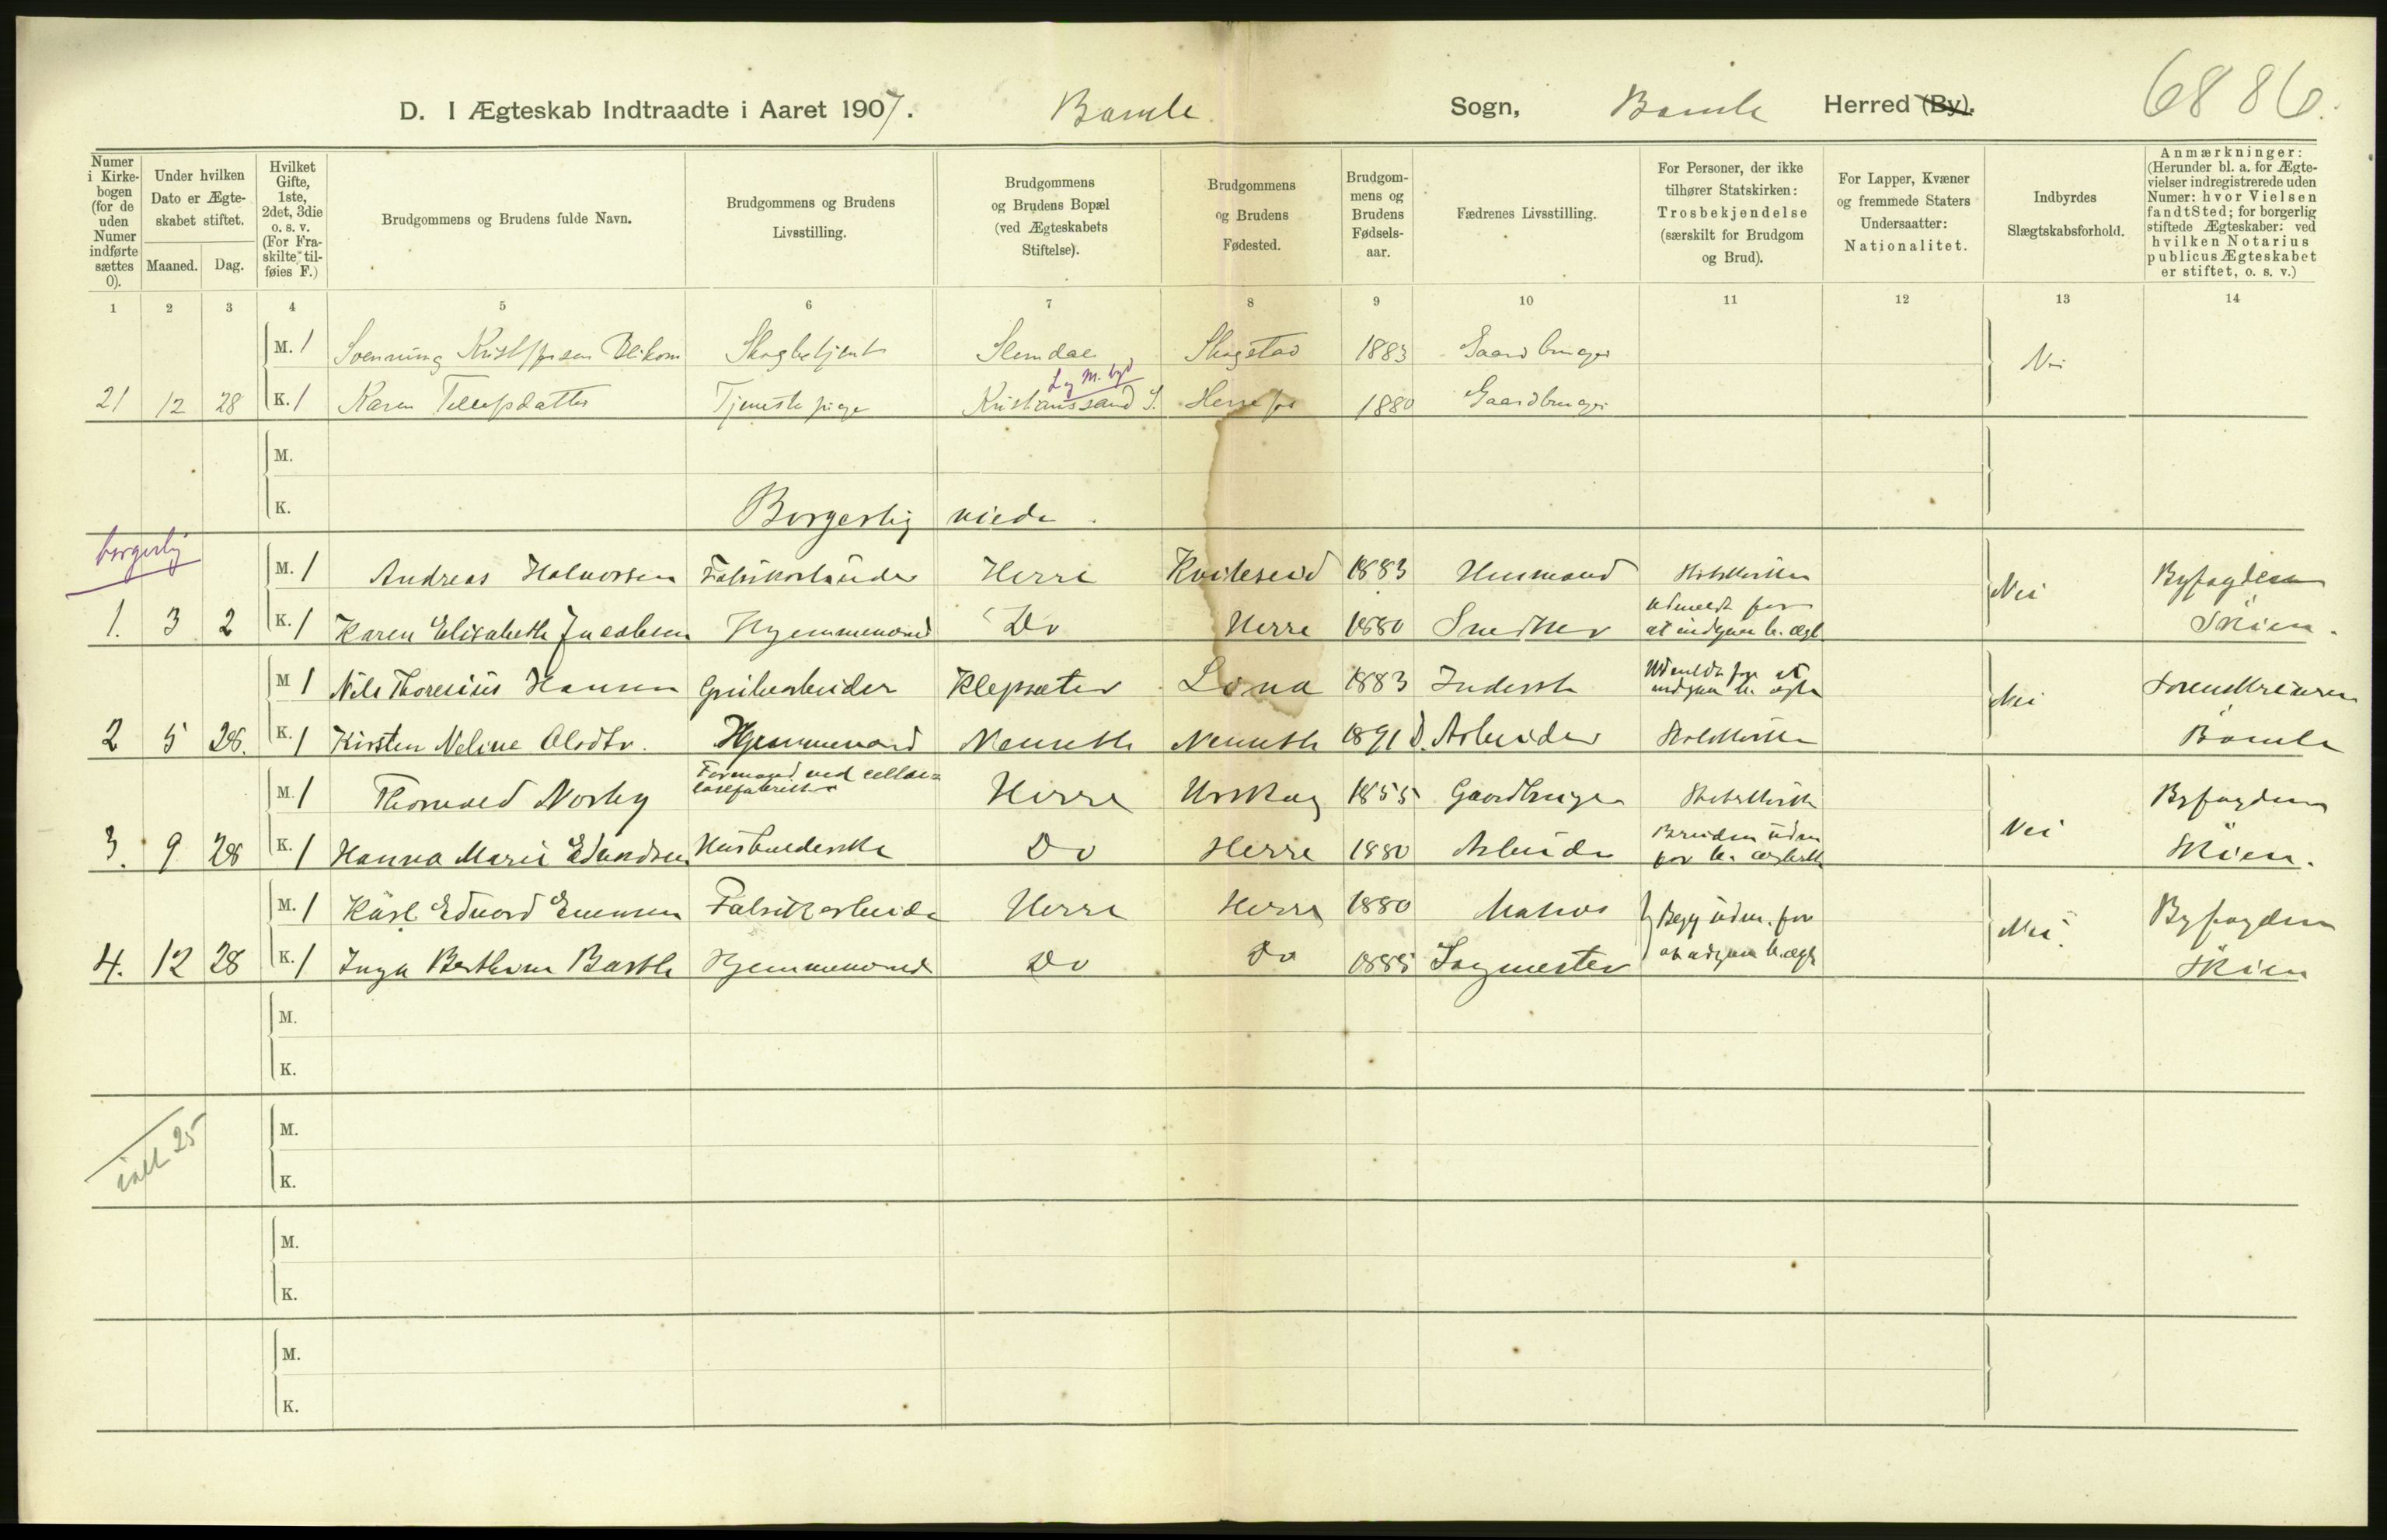 D. I Ægteskab Indtraadte i Aaret 1907. Bamle Sogn, Bamle Herred (By). 6886.
Numer i Kirkebogen (for de uden Numer indførte sættes 0).
Under hvilken Dato er Ægteskabet stiftet.
Maaned. Dag.
Hvilket Gifte, 1ste, 2det, 3die o. s. v. (For Fraskilte tilføies F.)
Brudgommens og Brudens fulde Navn.
Brudgommens og Brudens Livsstilling.
Brudgommens og Brudens Bopæl (ved Ægteskabets Stiftelse).
Brudgommens og Brudens Fødested.
Brudgommens og Brudens Fødselsaar.
Fædrenes Livsstilling.
For Personer, der ikke tilhører Statskirken: Trosbekjendelse (særskilt for Brudgom og Brud).
For Lapper, Kvæner og fremmede Staters Undersaatter: Nationalitet.
Indbyrdes Slægtskabsforhold.
Anmærkninger: (Herunder bl. a. for Ægtevielser indregistrerede uden Numer: hvor Vielsen fandt Sted; for borgerlig stiftede Ægteskaber: ved hvilken Notarius publicus Ægteskabet er stiftet, o. s. v.)
1 2 3 4 5 6 7 8 9 10 11 12 13 14
M. 1 Skogbetjent 1883 Gaardbruger Nei
21 12 28 K. 1 Karen Tellefsdatter Tjenestepige Kristianssand S. 1880 Gaardbruger
M.
K. Borgerlig viede.
borgerlig
M. 1 Andreas Halvorsen Fabrikarbeider Herre Kviteseid 1883 Husmand Statskirken Nei Byfogden
1. 3 2 K. 1 Karen Elisabeth Jacobsen Hjemmeværd Do Herre 1880 Snedker Udmeldt for at indgaa b. ægt. Skien.
M 1 Nils Thoresius Hansen Grubearbeider Klepsæter 1883 Inderst Udmeldt for at indgaa b. ægt. Nei Sorenskriveren
2 5 28. K. 1 Kirsten Neline Olsdtr. Hjemmeværd 1891 Arbeider Statskirken Bamle
M. 1 Thorvald Norby Formand ved cellulosefabrikken Herre Urskog 1855 Gaardbruger Statskirken Nei Byfogden
3. 9 28 K. 1 Hanna Marie Husholderske Do Herre 1880 Arbeider Bruden udm. for b. ægteskab Skien.
M. 1 Karl Edvard Fabrikarbeider Herre Herre 1880 Matros Begge udm. for Nei. Byfogden
4. 12 28 K. 1 Inga Hjemmeværd Do Do 1885 Sagmester at indgaa b. ægt. Skien
M.
K.
ialt 25
M.
K.
M.
K.
M.
K.